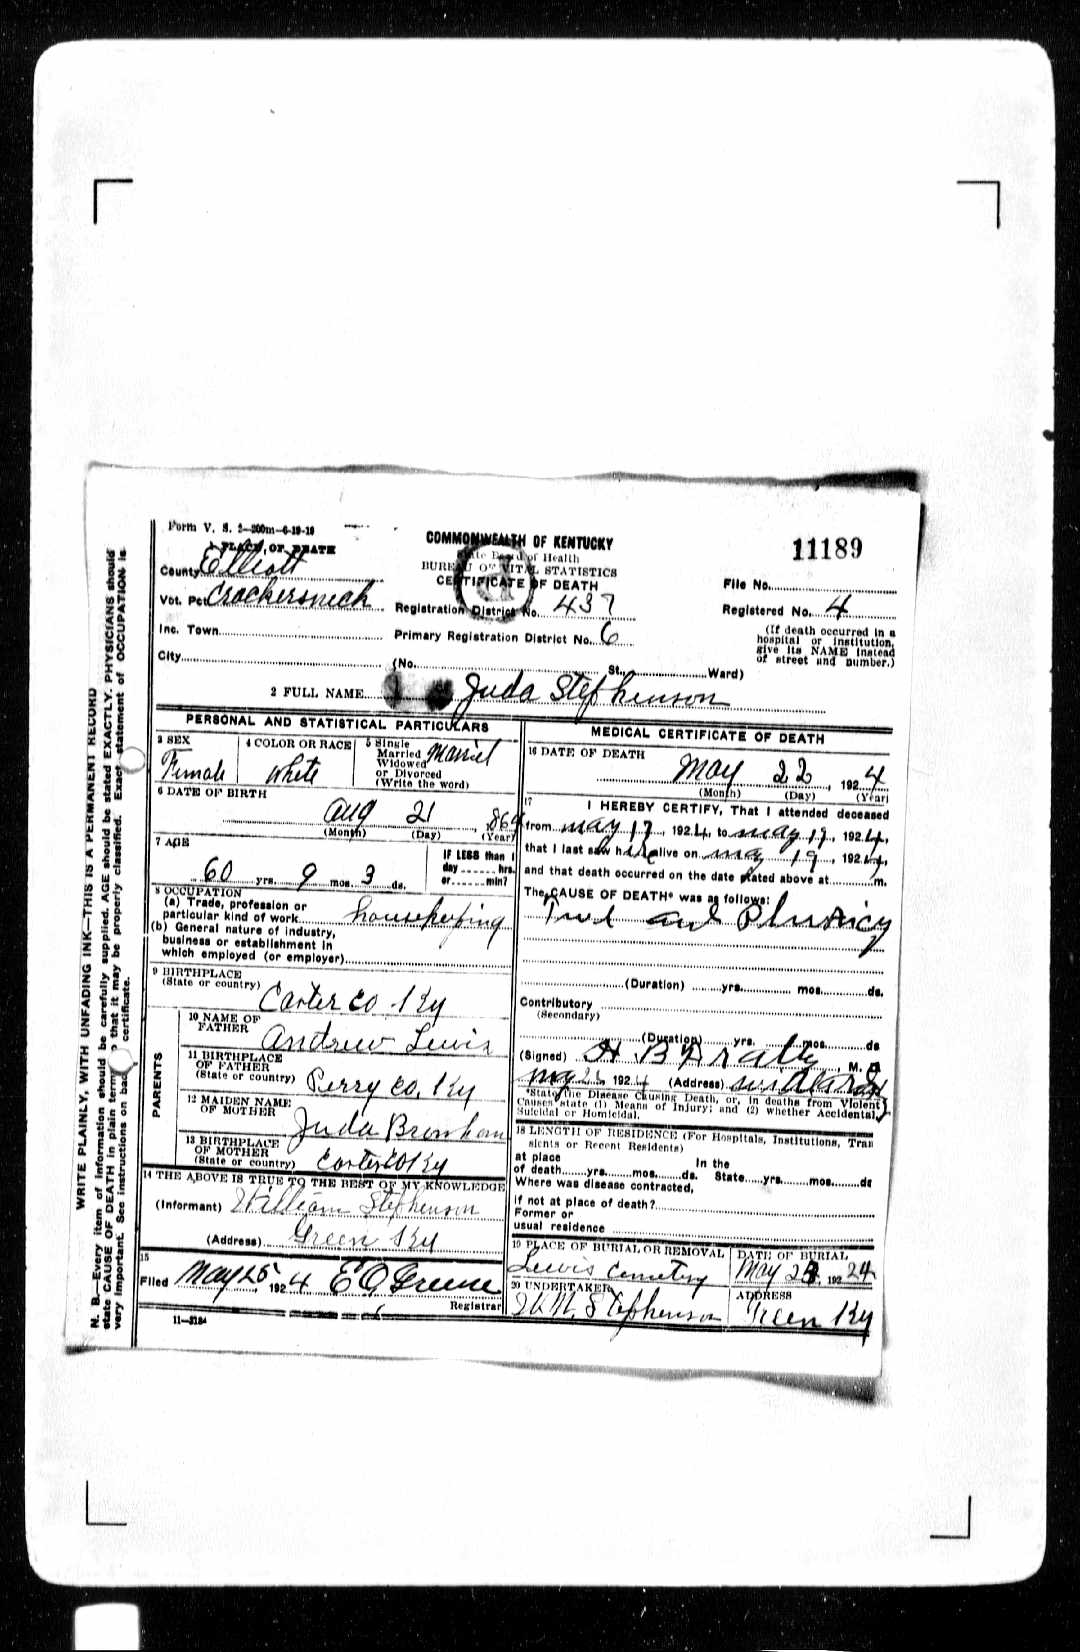 Form V. S. 2—200m—6-19-19
1 PLACE OF DEATH
COMMONWEALTH OF KENTUCKY
State Board of Health
BUREAU OF VITAL STATISTICS
CERTIFICATE OF DEATH
11189
County Elliott
File No.
Vot. Pct. Crackersneck
Registration District No. 437
Registered No. 4
Inc. Town
Primary Registration District No. 6
(If death occurred in a
hospital or institution,
give its NAME instead
of street and number.)
City
(No. St., Ward)
2 FULL NAME Juda Stephenson
PERSONAL AND STATISTICAL PARTICULARS
3 SEX
Female
4 COLOR OR RACE
White
5 Single
Married
Widowed
or Divorced
(Write the word)
Married
6 DATE OF BIRTH
Aug 21, 864
(Month) (Day) (Year)
7 AGE
60 yrs. 9 mos. 3 ds.
IF LESS than 1
day hrs.
or min?
8 OCCUPATION
(a) Trade, profession or
particular kind of work housekeeping
(b) General nature of industry,
business or establishment in
which employed (or employer)
9 BIRTHPLACE
(State or country) Carter Co Ky
PARENTS
10 NAME OF
FATHER Andrew Lewis
11 BIRTHPLACE
OF FATHER
(State or country) Perry Co. Ky
12 MAIDEN NAME
OF MOTHER Juda
13 BIRTHPLACE
OF MOTHER
(State or country) Carter Co Ky
14 THE ABOVE IS TRUE TO THE BEST OF MY KNOWLEDGE
(Informant) William Stephenson
(Address) Green Ky
15
Filed May 25, 1924 E G Greene
Registrar
11—3184
MEDICAL CERTIFICATE OF DEATH
16 DATE OF DEATH
May 22, 1924
(Month) (Day) (Year)
17
I HEREBY CERTIFY, That I attended deceased
from May 17, 1924, to May 19, 1924,
that I last saw her alive on May 19, 1924,
and that death occurred on the date stated above at m.
The CAUSE OF DEATH* was as follows:
and
(Duration) yrs. mos. ds.
Contributory
(Secondary)
(Duration) yrs. mos. ds
(Signed) H B , M. D.
May , 1924 (Address)
*State the Disease Causing Death, or, in deaths from Violent
Causes state (1) Means of Injury; and (2) whether Accidental,
Suicidal or Homicidal.
18 LENGTH OF RESIDENCE (For Hospitals, Institutions, Tran
sients or Recent Residents)
at place In the
of death yrs. mos. ds. State yrs. mos. ds
Where was disease contracted,
if not at place of death?
Former or
usual residence
19 PLACE OF BURIAL OR REMOVAL
Lewis Cemetery
DATE OF BURIAL
May 23, 1924
20 UNDERTAKER
W. M. Stephenson
ADDRESS
Green Ky
WRITE PLAINLY, WITH UNFADING INK—THIS IS A PERMANENT RECORD
N. B.—Every item of information should be carefully supplied. AGE should be stated EXACTLY. PHYSICIANS should
state CAUSE OF DEATH in plain terms that it may be properly classified. Exact statement of OCCUPATION is
very important. See instructions on back certificate.